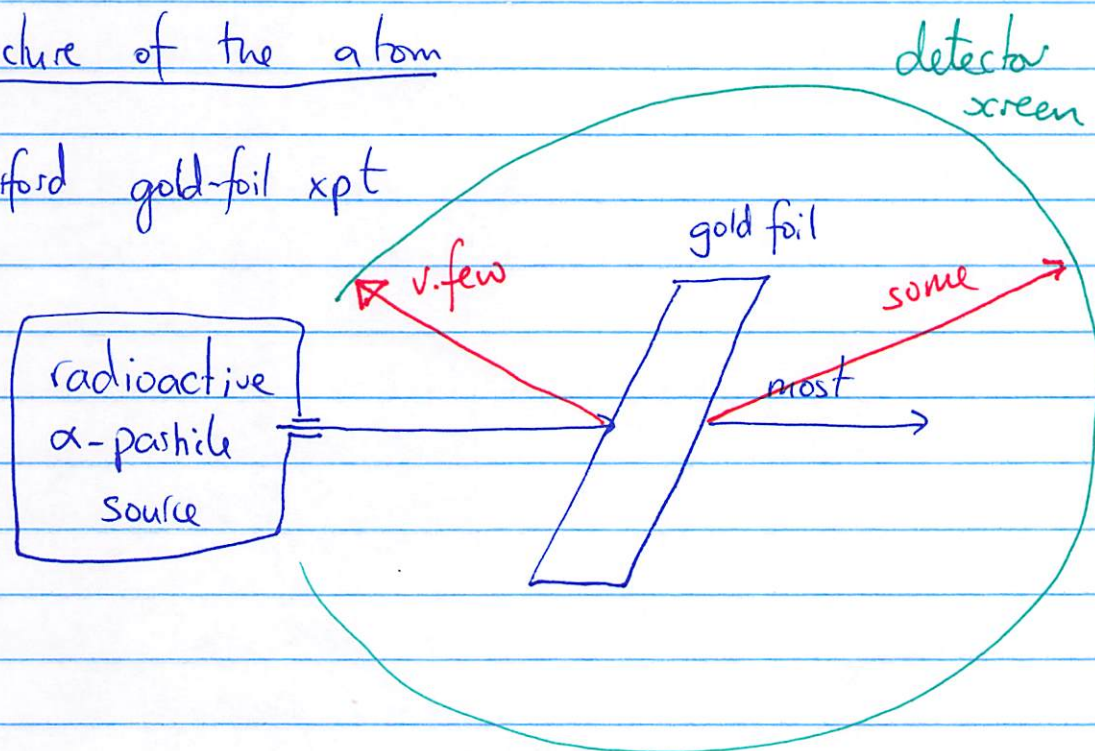 cture of the atom
detector
screen
rford gold-foil xpt
gold foil
v.few
some
most
radioactive
α-particle
source